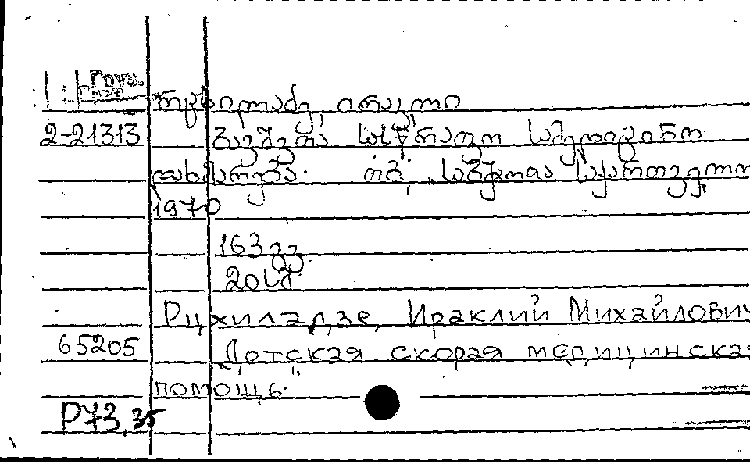 რცხილაძე, ირაკლი
2-21313 ბავშვთა სასწრაფო სამედიცინო
დახმარება. თბ., საბჭოთა საქართველო
1970
163 გვ.
20სმ
Рцхиладзе, Ираклий Михайлович
65205 Детская скорая медицинская
помощь.
Р73,35